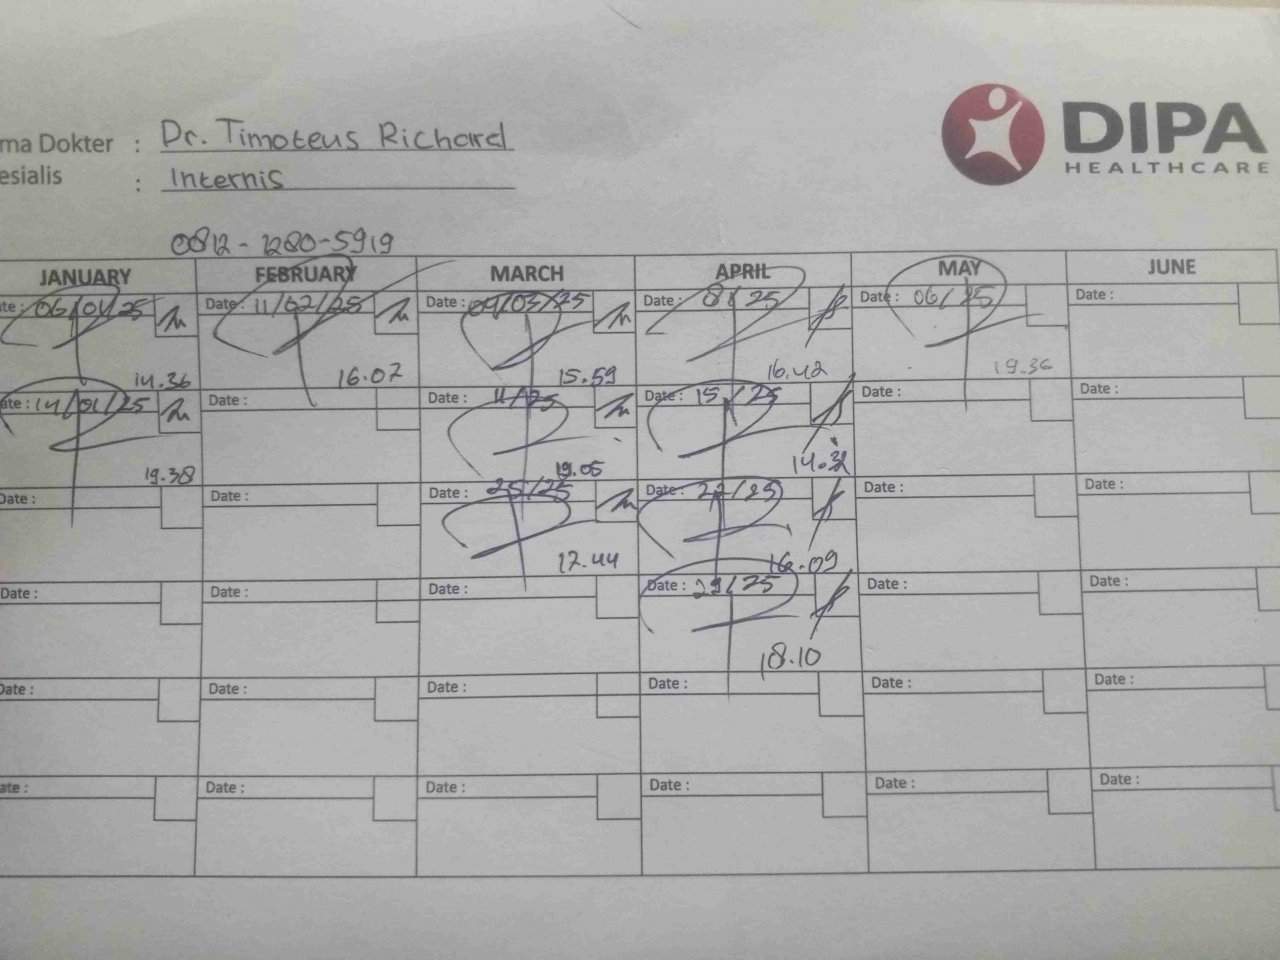 DIPA
HEALTHCARE
ma Dokter : Dr. Timoteus Richard
esialis : Internis
0812-1280-5919
JANUARY FEBRUARY MARCH APRIL MAY JUNE
ate : 06/01/25 Date : 11/02/25 Date : 04/03/25 Date : 8/25 Date : 06/25 Date :
14.36 16.07 15.59 16.42 19.36
ate : 14/01/25 Date : Date : 11/25 Date : 15/25 Date : Date :
19.38 19.05 14.32
Date : Date : Date : 25/25 Date : 22/25 Date : Date :
17.44 16.09
Date : Date : Date : Date : 29/25 Date : Date :
18.10
Date : Date : Date : Date : Date : Date :
ate : Date : Date : Date : Date : Date :